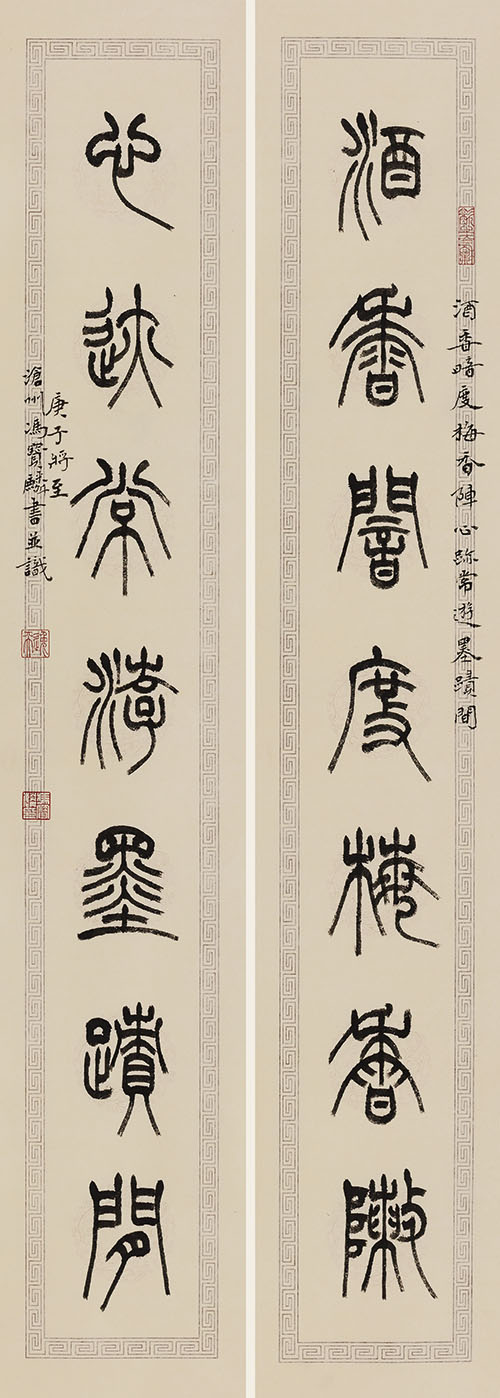 酒香闇度梅香陣
酒香暗度梅香陣心跡常遊墨蹟間
心迹常游墨蹟閒
庚子將至
滄州馮寶麟書並識